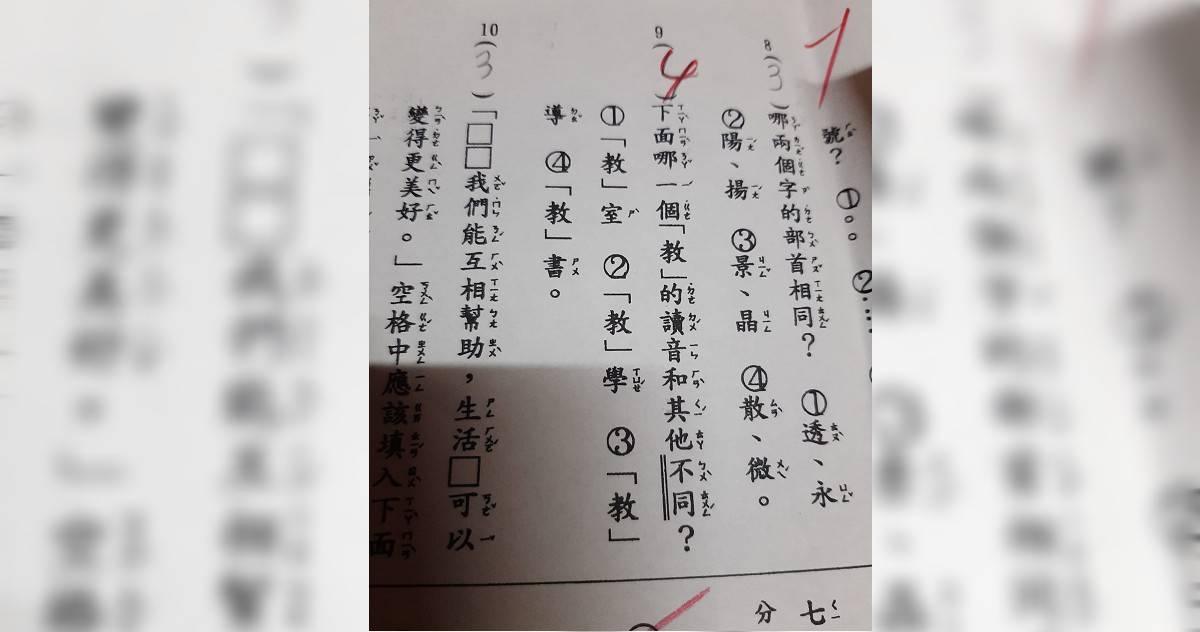 號？ ①。。 ②：：
8 (3) 哪兩個字的部首相同？ ①透、永
②陽、揚 ③景、晶 ④散、微。
9 (4) 下面哪一個「教」的讀音和其他不同？
①「教」室 ②「教」學 ③「教」
導 ④「教」書。
10 (3) 「□□我們能互相幫助，生活□可以
變得更美好。」空格中應該填入下面
七
分